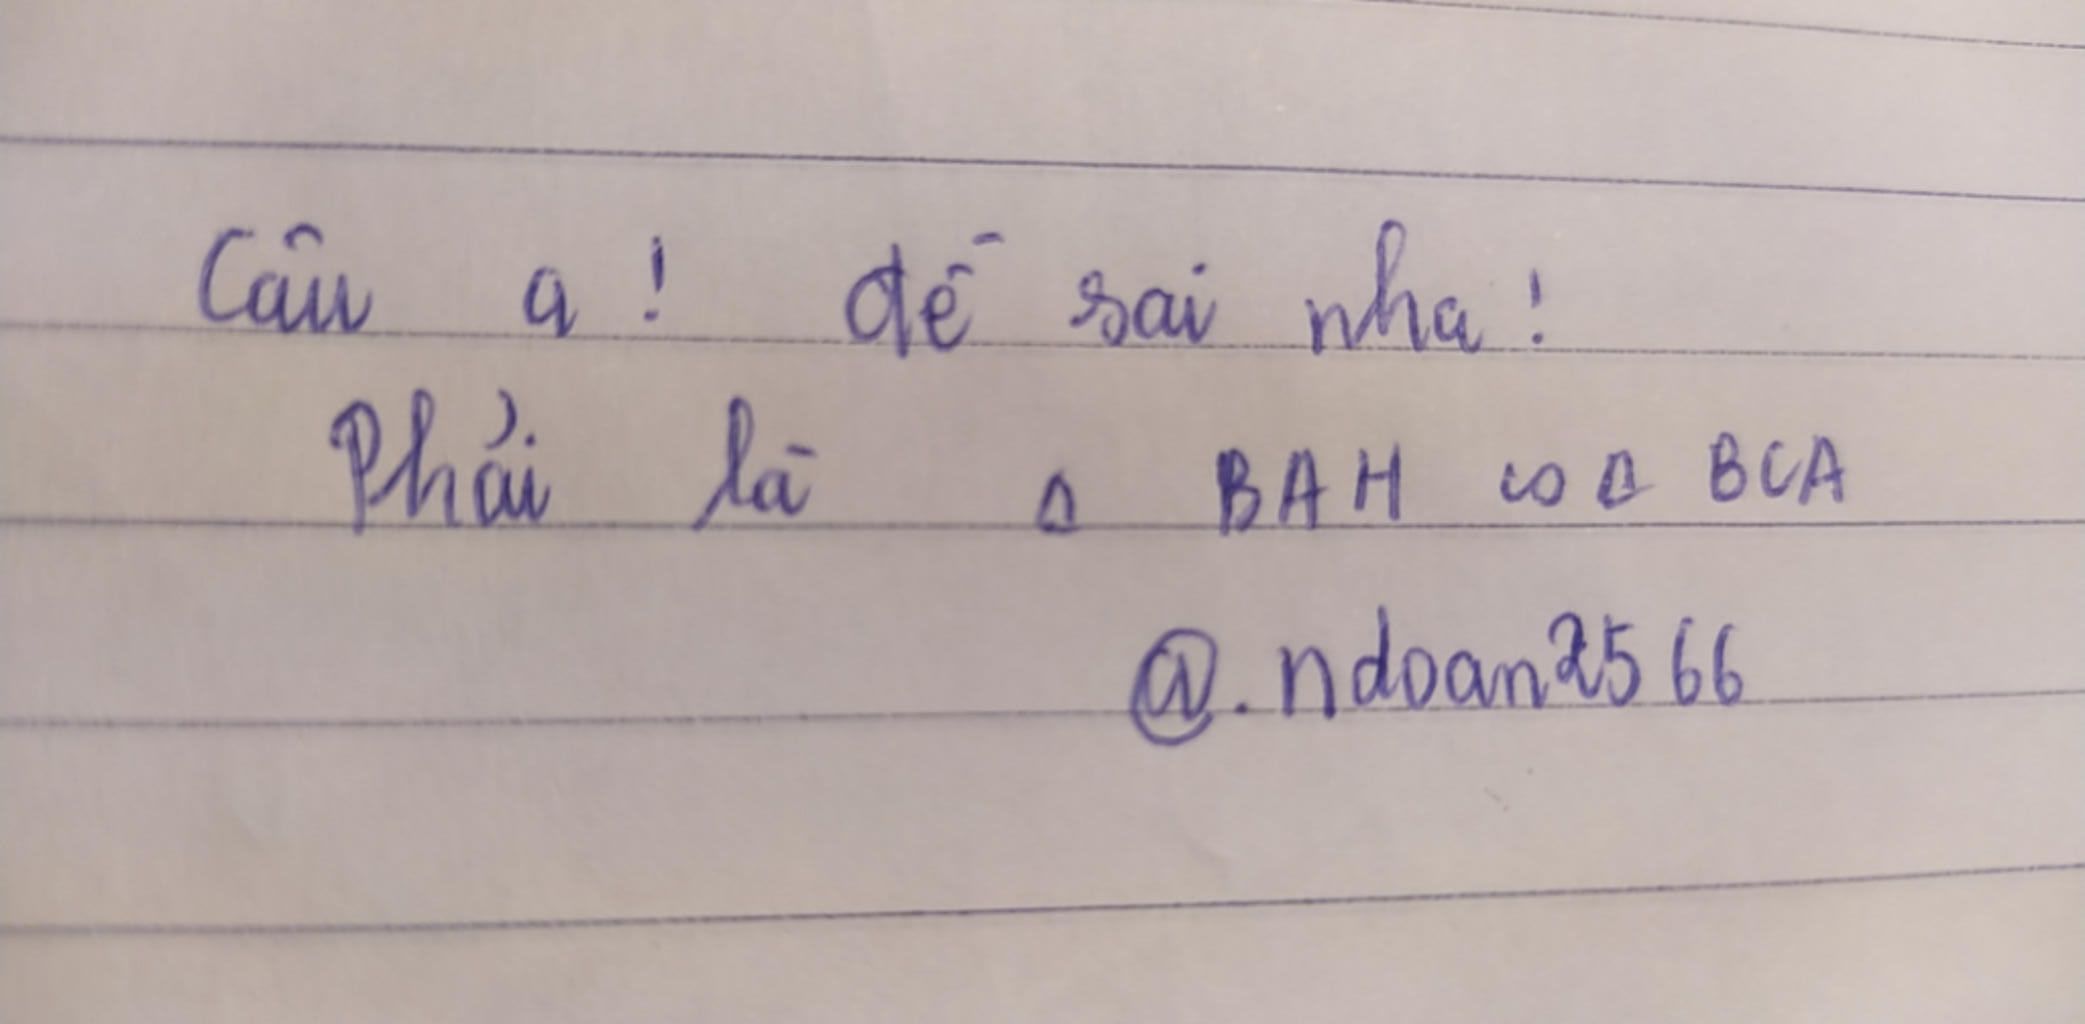 Câu a! đề sai nha!
Phải là Δ BAH ∽ Δ BCA
@.ndoan2566